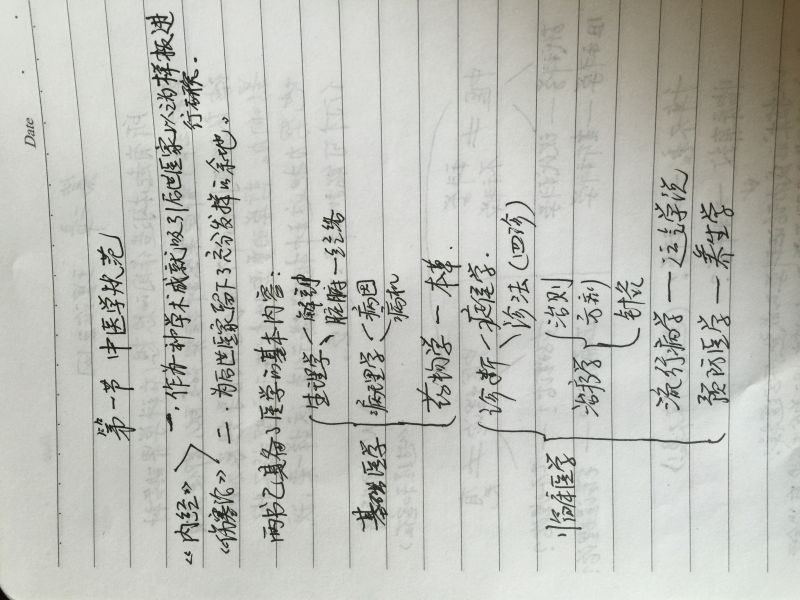 Date
第一节 中医学规范
《内经》 一.作为一种学术成就吸引后世医家以之为样板进
行研究.
《伤寒论》 二.为后世医家留下了充分发挥的余地。
两书已具备了医学的基本内容:
生理学 解剖
脏腑—经络
基础医学 病理学 病因
病机
药物学 — 本草.
诊断 症医学.
诊法(四诊)
临床医学 治疗学 治则
方剂
针灸
流行病学 — 运气学说
预防医学 — 养生学